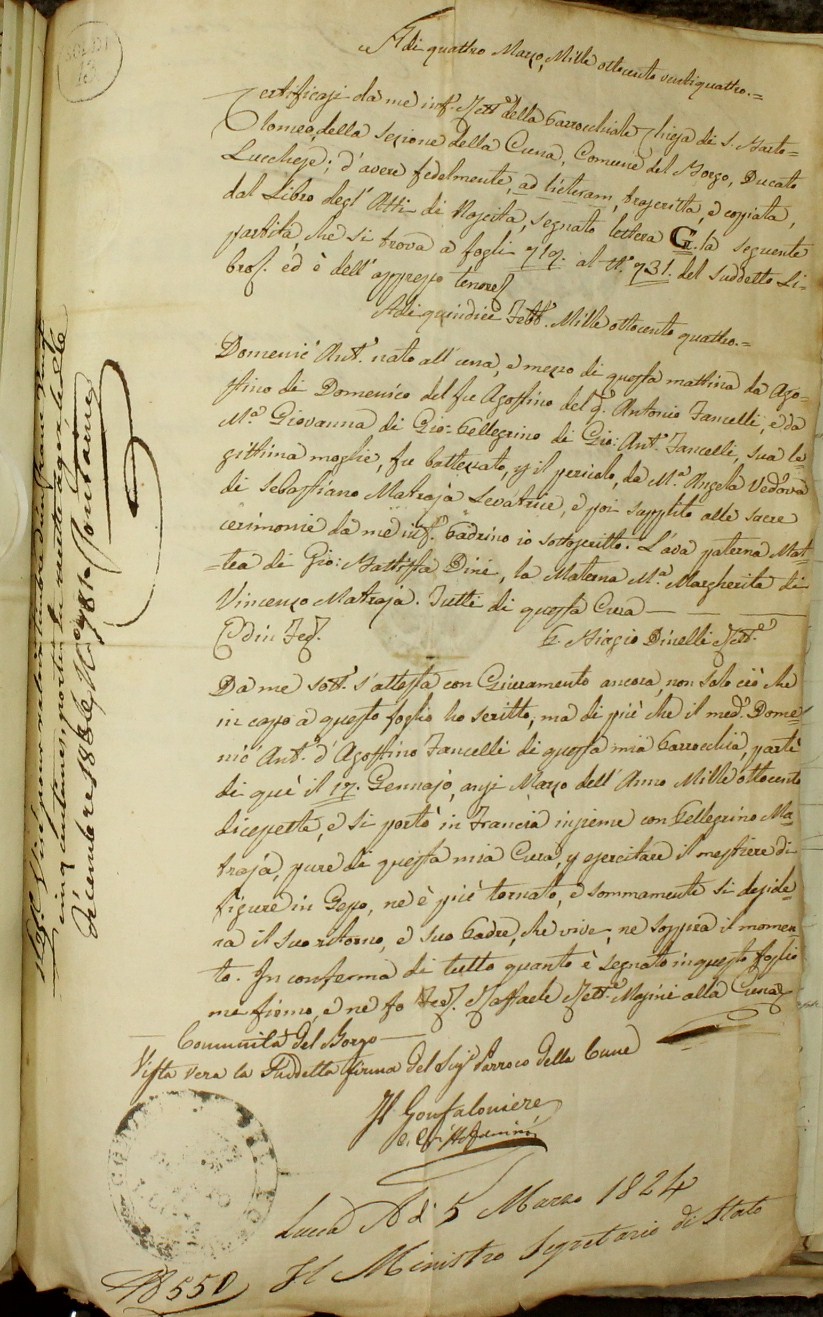 SOLDI
13
A di quattro Marzo, Mille ottocento ventiquattro.=
Certificasi da me inf.º Rett.e della Parrocchiale Chiesa di S. Barto=
lomeo, della Sezione della Cuna, Comune del Borgo, Ducato
Lucchese; d'avere fedelmente, ad literam, trascritta, e copiata,
dal Libro degl'Atti di Nascita, segnato lettera G. la seguente
partita, che si trova a fogli 717. al N.º 731. del suddetto Li=
bro. ed è dell'appresso tenore
Adi quindici Febb.º Mille ottocento quattro.=
Domenic' Ant.º nato all'una, e mezzo di questa mattina da Ago=
stino di Domenico del fu Agostino del q.m Antonio Fancelli, e da
M.a Giovanna di Gio: Pellegrino di Gio: Ant.º Fancelli, sua le=
gittima moglie, fu battezzato, p il pericolo, da M.a Angela Vedova
di Sebastiano Matraja Levatrice, e poi supplito alle sacre
cerimonie da me inf.º Padrino io sottoscritto. L'ava paterna Mat=
=tea di Gio: Battista Dini, la Materna M.a Margherita di
Vincenzo Matraja. Tutti di questa Cura
Ed in Fed.
P. Biagio Dinelli Rett.e
Da me sott.º s'attesta con Giuramento ancora, non solo ciò che
in capo a questo foglio ho scritto, ma di più che il med.º Dome=
nic' Ant.º d'Agostino Fancelli di questa mia Parrocchia, partì
di quì il 17. Gennajo, anzi Marzo dell'Anno Mille ottocento
diciesette, e si portò in Francia insieme con Pellegrino Ma=
traja, pure di questa mia Cura, p esercitare il mestiere di
figure in Gesso, nè è più tornato, e sommamente si deside=
ra il suo ritorno, e suo Padre, che vive, ne sospira il momen=
to. In conferma di tutto quanto è segnato in questo foglio
me firmo, e ne fo Fed. Raffaele Rett.e Masini alla Cuna
Comunità del Borgo
Vista vera la suddetta firma del Sig.r Parroco della Cune
Il Gonfaloniere
Lucca A di 5 Marzo 1824
Il Ministro Segretario di Stato
N 8550
Visé pour valoir timbre
cinquante centimes, porté en recette
Décembre 1836 Nº 781